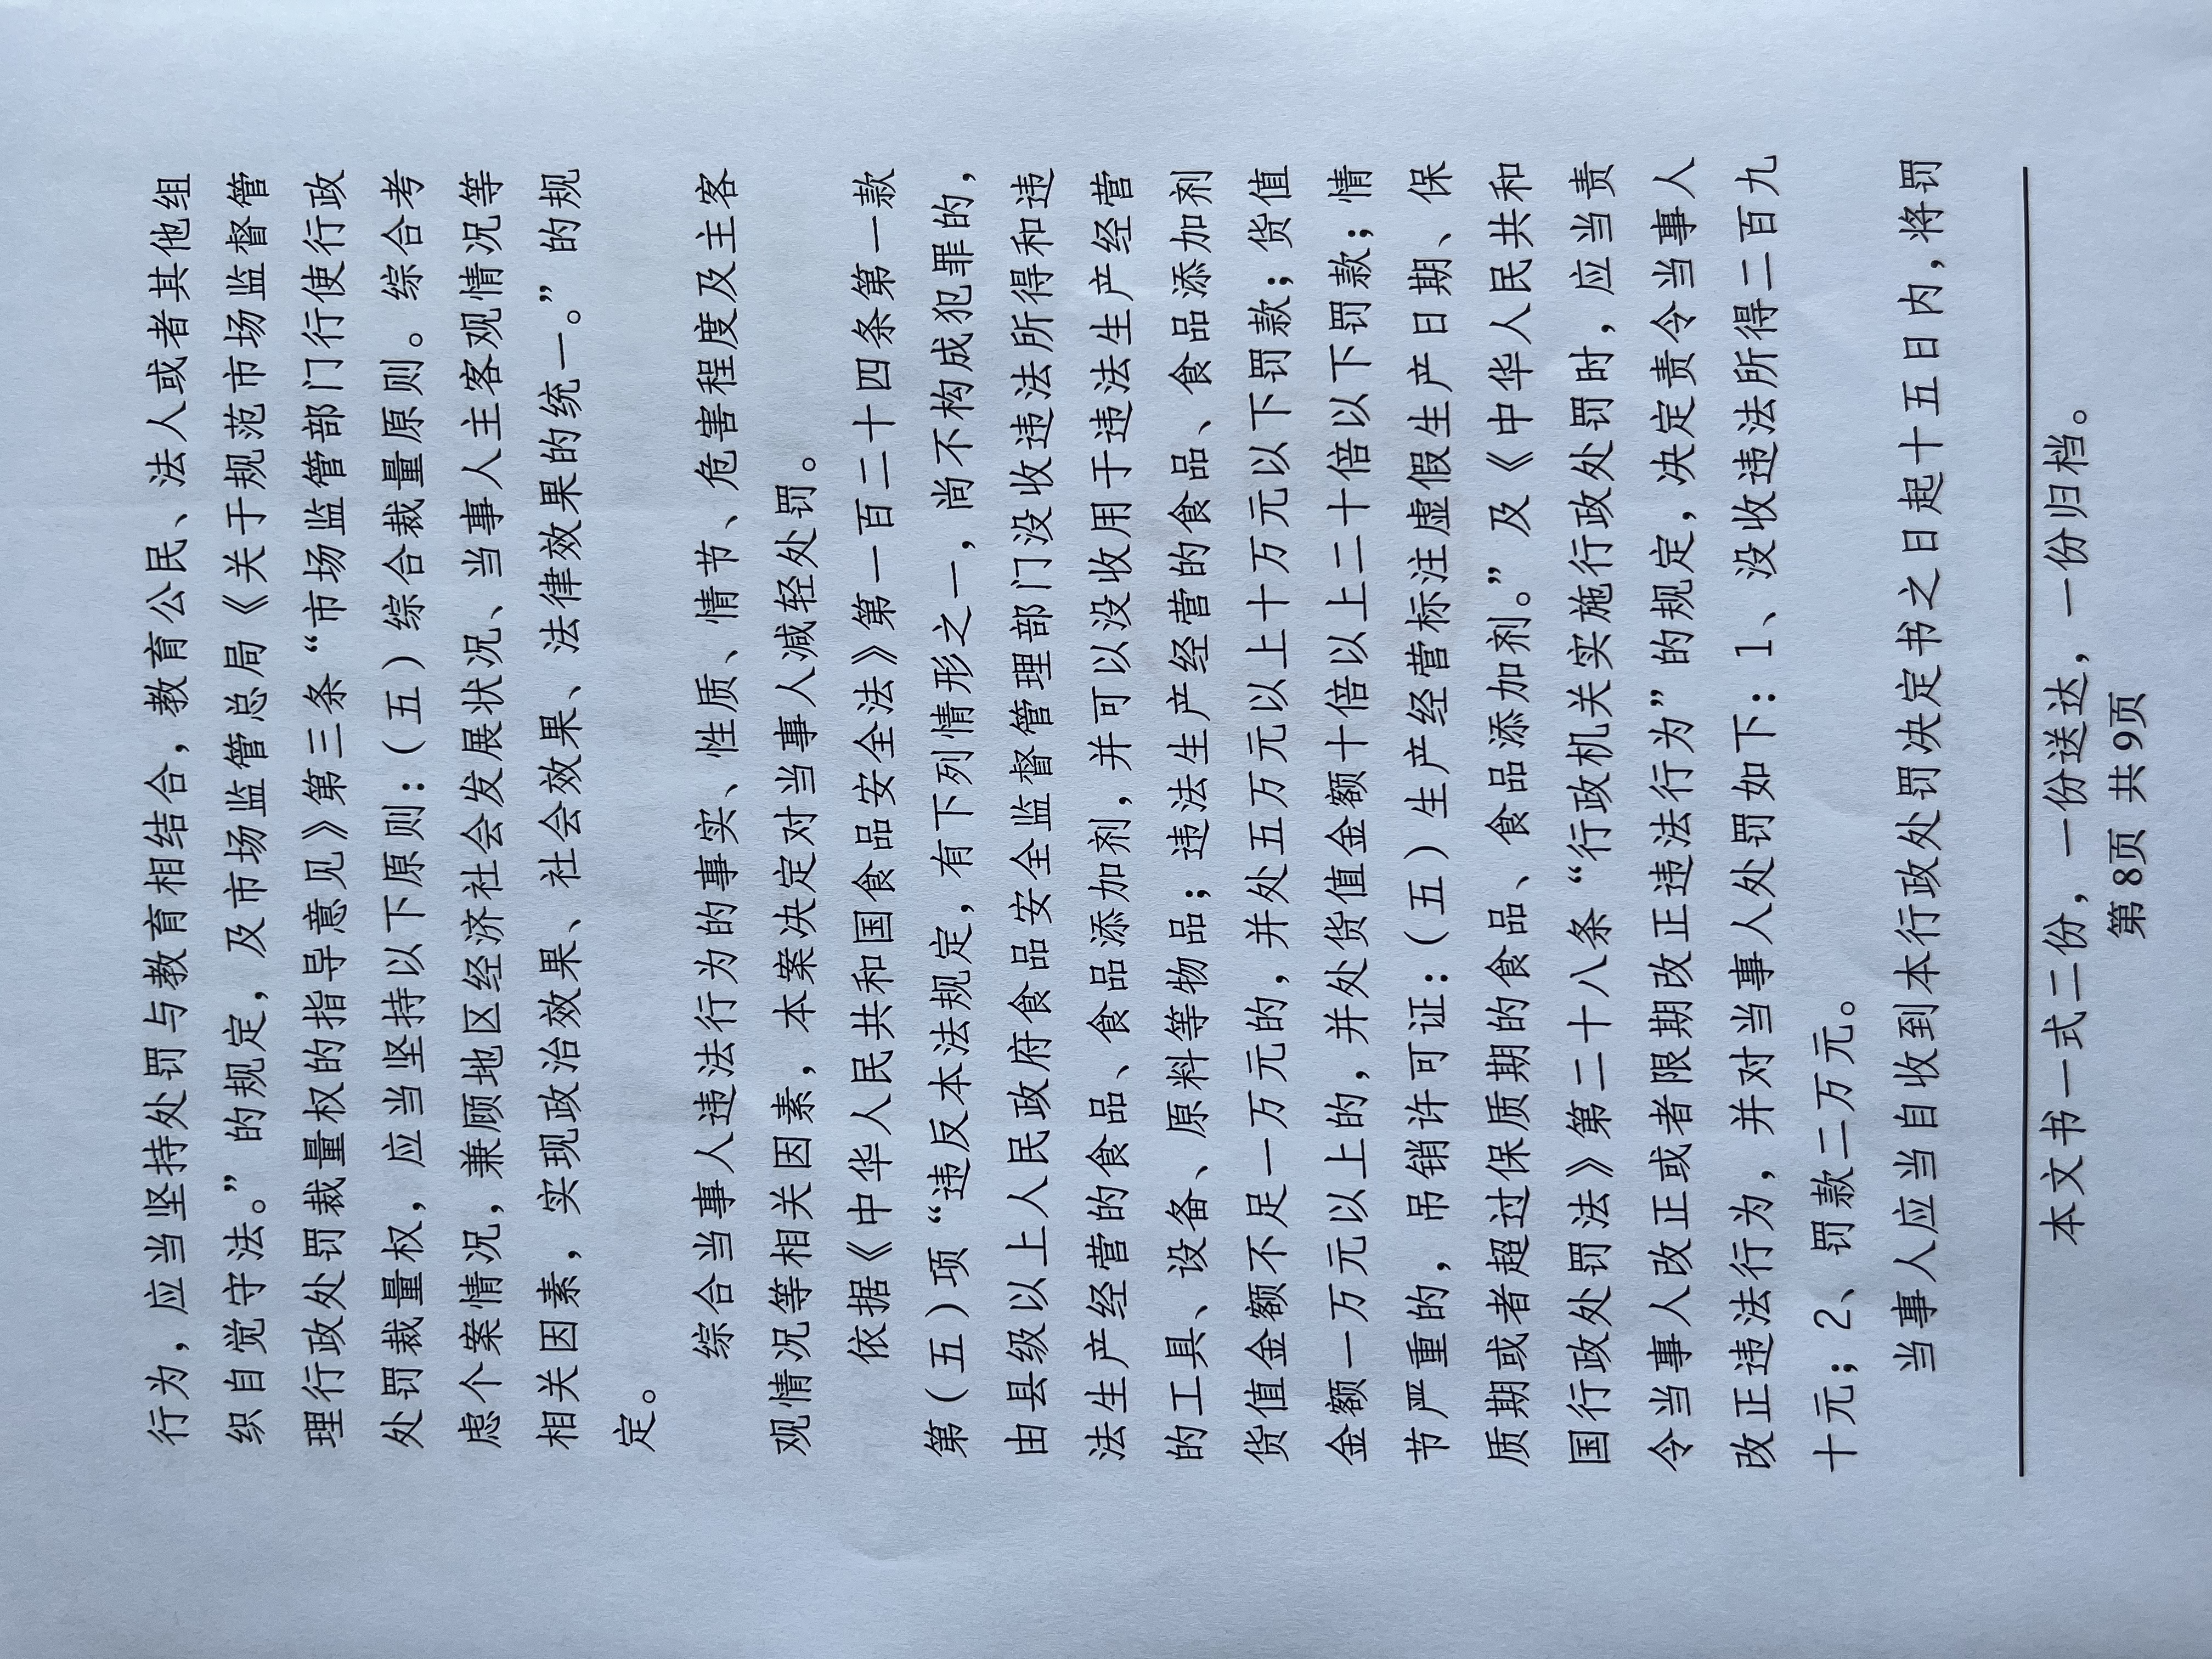 行为，应当坚持处罚与教育相结合，教育公民、法人或者其他组
织自觉守法。”的规定，及市场监管总局《关于规范市场监督管
理行政处罚裁量权的指导意见》第三条“市场监管部门行使行政
处罚裁量权，应当坚持以下原则：（五）综合裁量原则。综合考
虑个案情况，兼顾地区经济社会发展状况、当事人主客观情况等
相关因素，实现政治效果、社会效果、法律效果的统一。”的规
定。
综合当事人违法行为的事实、性质、情节、危害程度及主客
观情况等相关因素，本案决定对当事人减轻处罚。
依据《中华人民共和国食品安全法》第一百二十四条第一款
第（五）项“违反本法规定，有下列情形之一，尚不构成犯罪的，
由县级以上人民政府食品安全监督管理部门没收违法所得和违
法生产经营的食品、食品添加剂，并可以没收用于违法生产经营
的工具、设备、原料等物品；违法生产经营的食品、食品添加剂
货值金额不足一万元的，并处五万元以上十万元以下罚款；货值
金额一万元以上的，并处货值金额十倍以上二十倍以下罚款；情
节严重的，吊销许可证：（五）生产经营标注虚假生产日期、保
质期或者超过保质期的食品、食品添加剂。”及《中华人民共和
国行政处罚法》第二十八条“行政机关实施行政处罚时，应当责
令当事人改正或者限期改正违法行为”的规定，决定责令当事人
改正违法行为，并对当事人处罚如下：1、没收违法所得二百九
十元；2、罚款二万元。
当事人应当自收到本行政处罚决定书之日起十五日内，将罚
本文书一式二份，一份送达，一份归档。
第8页 共9页